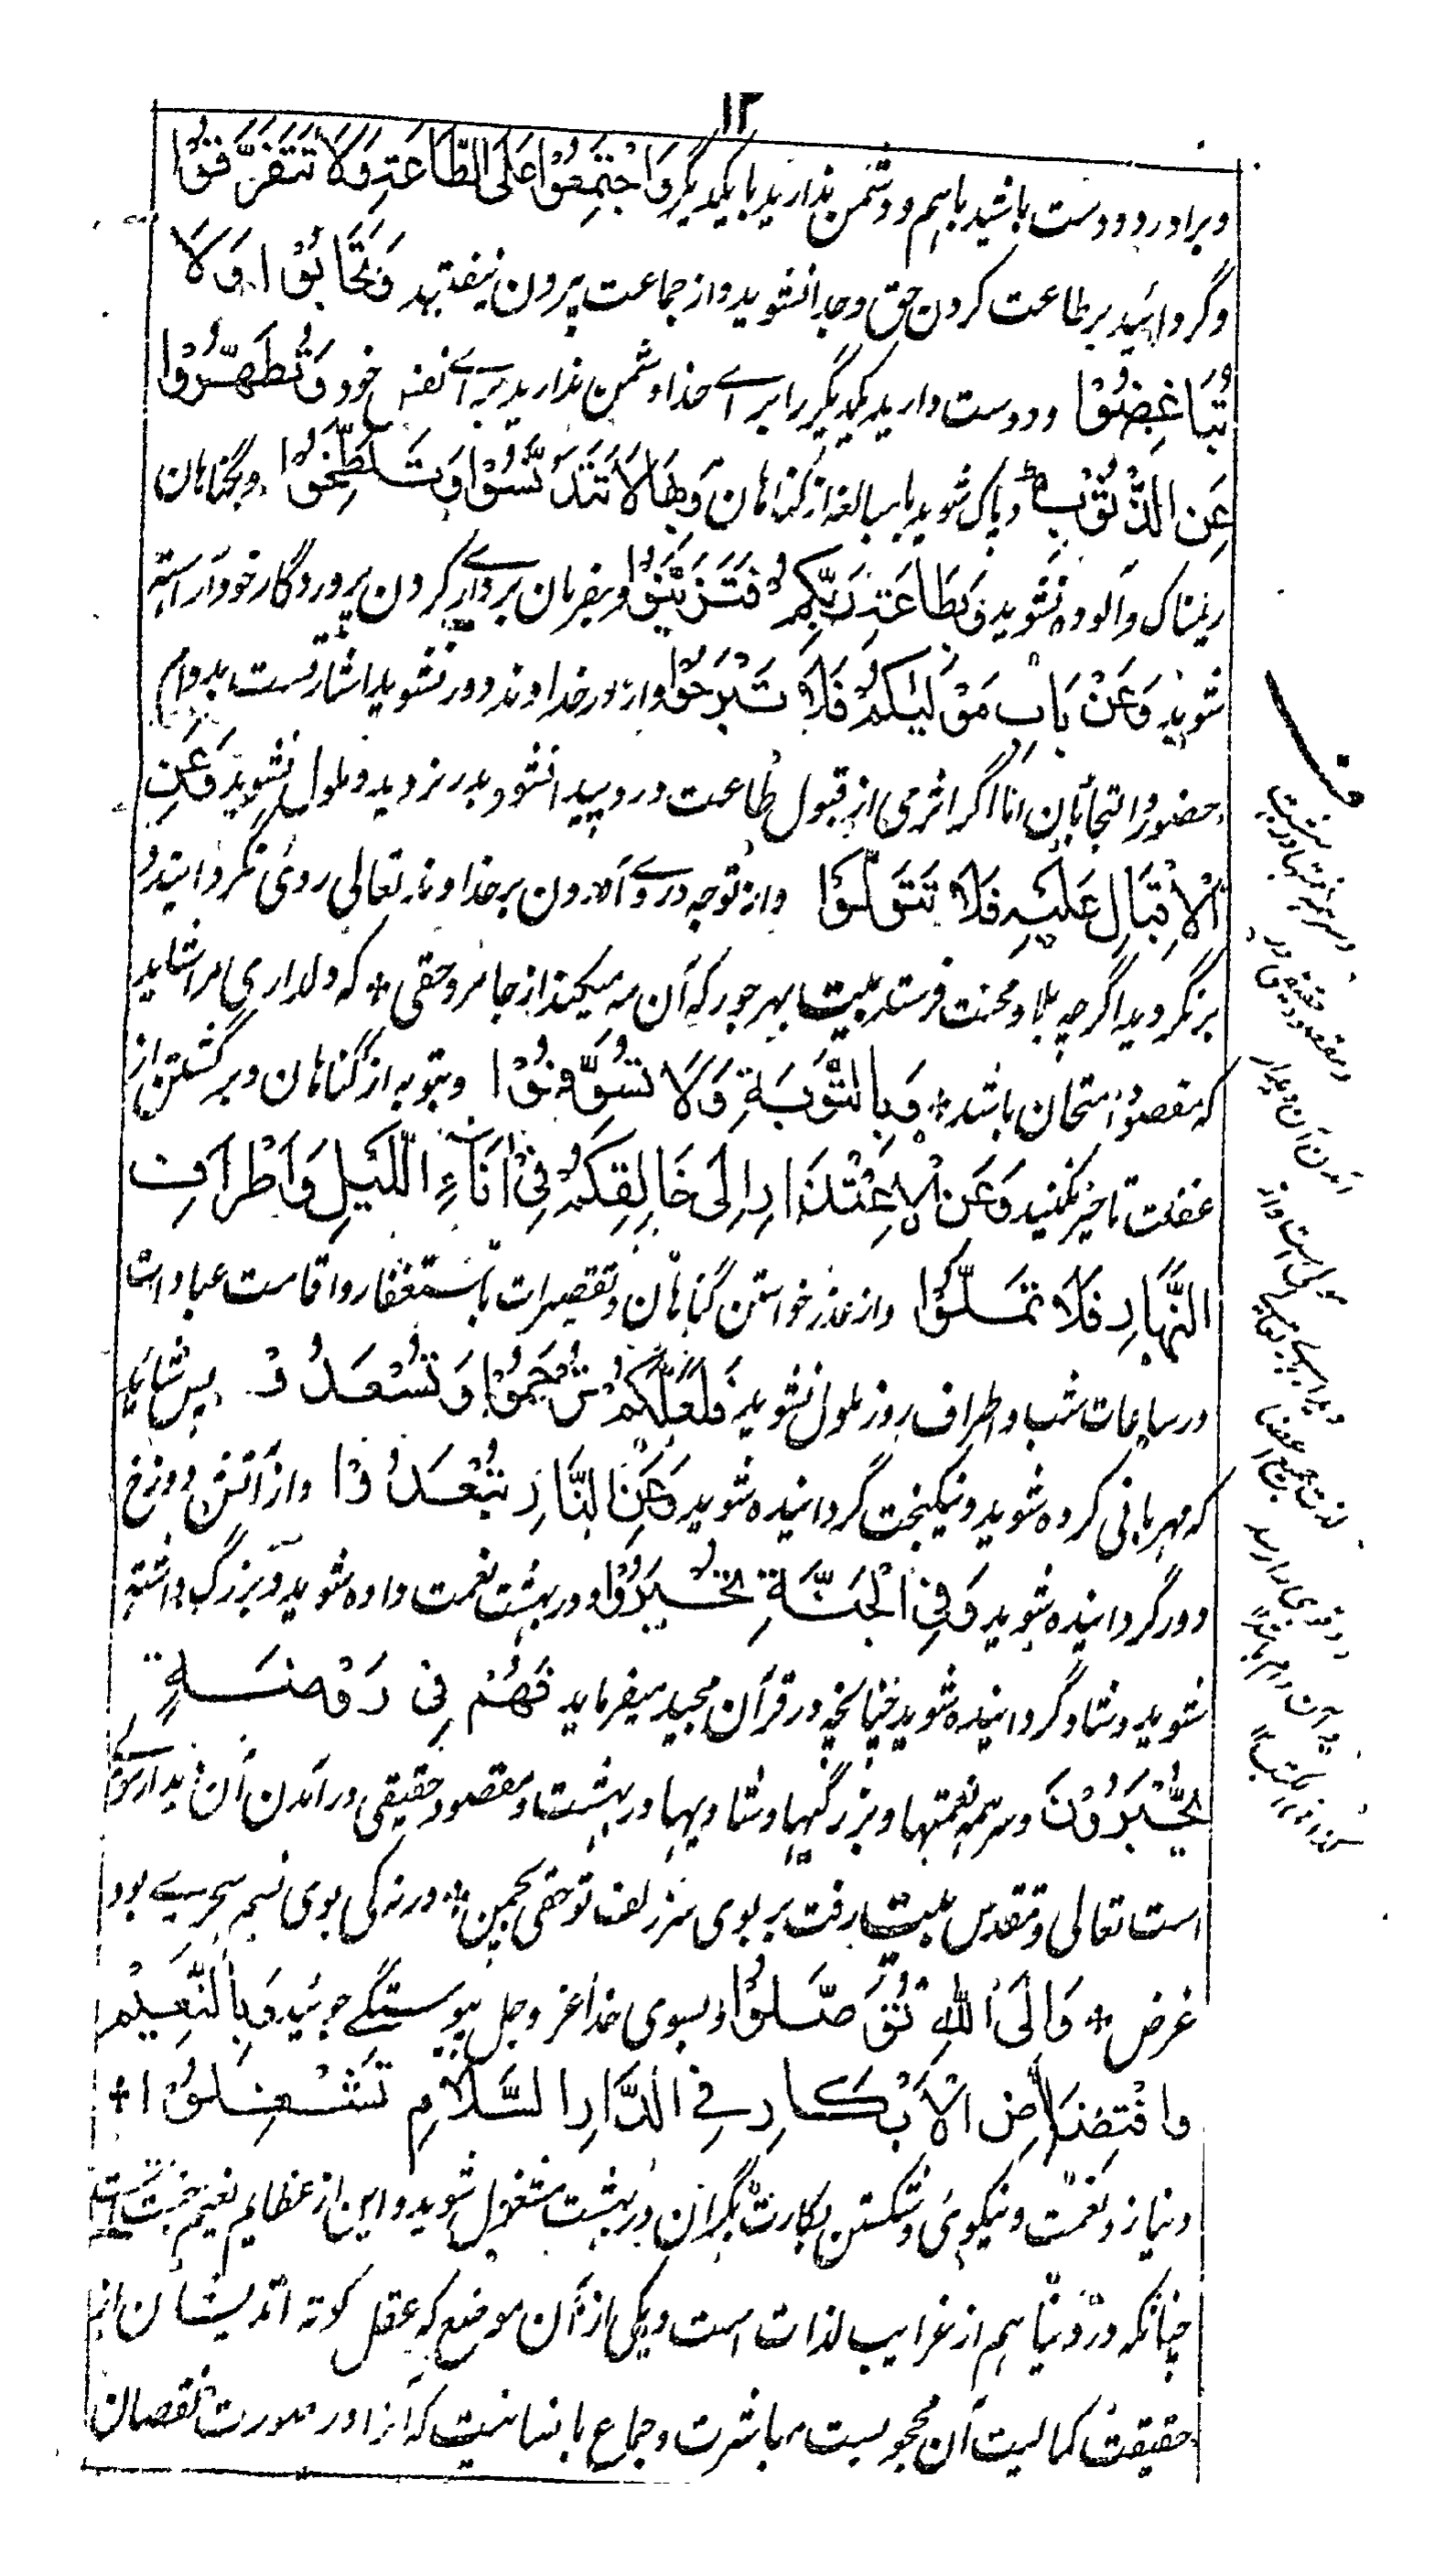 ١٢
وبرادر و دوست باشید باهم و دشمن ندارید با یکدیگر وَاجْتَمِعُوْا عَلَى الطَّاعَةِ وَلَا تَتَفَرَّقُوْا
وگرد آئید بر طاعت کردن حق وجدا نشوید واز جماعت بیرون نیفتید وَتَحَابُّوْا وَلَا
تَبَاغَضُوْا ودوست دارید یکدیگر را برای خدا ودشمن ندارید برای نفس خود وَتَطَهَّرُوْا
عَنِ الذُّنُوْبِ وپاک شوید بامبالغه از گناهان وَبِهَا لَا تَتَدَنَّسُوْا وَتَتَلَطَّخُوْا وبگناهان
ریمناک وآلوده نشوید وَبِطَاعَةِ رَبِّكُمْ فَتَزَيَّنُوْا وبفرمان برداری کردن پروردگار خود آراسته
شوید وَعَنْ بَابِ مَوْلَيٰكُمْ فَلَا تَبْرَحُوْا واز در خداوند دور نشوید اشارتست بدوام
حضور والتجا بآن تا اگر اثری از قبول طاعت در و پیدا نشود بدر نروید وملول نشوید وَعَنِ
الْاِقْبَالِ عَلَيْهِ فَلَا تَتَوَلَّوْا واز توجه و روی آوردن بر خداوند تعالی روی نگردانید و
برنگردید اگرچه بلا ومحنت فرستد بیت بهر جور که آن مه میکند از جا مرو حقی ٭ که دلداری مرا شاید
که مقصود امتحان باشد ٭ وَبِالتَّوْبَةِ وَلَا تُسَوِّفُوْا وبتوبه از گناهان وبرگشتن از
غفلت تاخیر نکنید وَعَنِ الْاِعْتِذَارِ اِلٰى خَالِقِكُمْ فِيْ اٰنَآءِ اللَّيْلِ وَاَطْرَافِ
النَّهَارِ فَلَا تَمَلُّوْا واز عذر خواستن گناهان وتقصیرات باستغفار واقامت عبادات
در ساعات شب واطراف روز ملول نشوید فَلَعَلَّكُمْ تُرْحَمُوْا وَتُسْعَدُوْا پس شاید
که مهربانی کرده شوید ونیکبخت گردانیده شوید وَعَنِ النَّارِ تُبْعَدُوْا واز آتش دوزخ
دور گردانیده شوید وَفِي الْجَنَّةِ تُحْبَرُوْا ودر بهشت نعمت داده شوید وبزرگ داشته
شوید وشاد گردانیده شوید چنانچه در قرآن مجید میفرماید فَهُمْ فِيْ رَوْضَةٍ
يُّحْبَرُوْنَ وسر همه نعمتها وبزرگیها وشادیها در بهشت ومقصود حقیقی در آمدن آن دیدار مولی
است تعالی وتقدس بیت رفت بر بوی سر زلف تو حقی بچمن ٭ ورنه کی بوی نسیم سحری بود
غرض ٭ وَاِلَى اللهِ تُوَصَّلُوْا وبسوی خدا عز وجل پیوستگی جوئید وَبِالنَّعِيْمِ
وَافْتِضَاضِ الْاَبْكَارِ فِي الدَّارِ السَّلَامِ تَشْغِلُوْا ٭
وبناز ونعمت ونیکوئی وشکستن بکارت بکران در بهشت مشغول شوید واین از عظایم نعیم جنت است
چنانکه در دنیا هم از غرایب لذات است ویکی از آن موضع که عقل کوته اندیشان از
حقیقت کمالیت آن محجوبست مباشرت وجماع با نساست که آنرا در صورت نقصان
وسر همه نعمتها در بهشت
ومقصود حقیقی در
آمدن آن دیدار